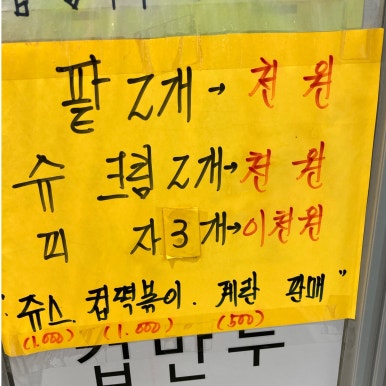 팥 2개→ 천원
슈 크림 2개→ 천원
피 자 3 개→이천원
"쥬스. 컵떡볶이. 계란 판매"
(1.000) (1.000) (500)
김만두